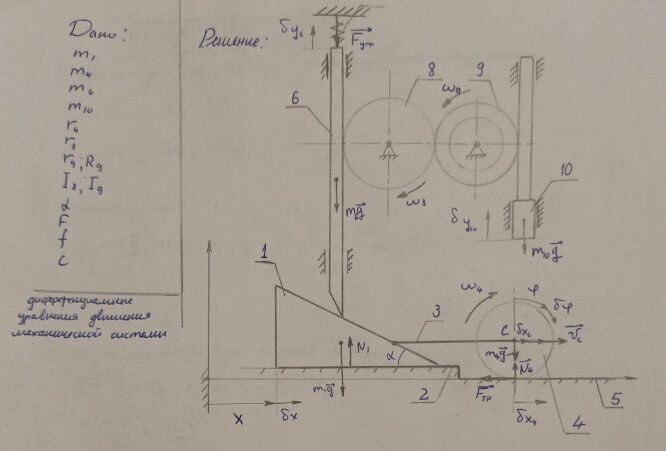 Дано:
m₁
m₄
m₆
m₁₀
r₄
r₈
r₉; R₉
I₈; I₉
α
F
f
c
дифференциальные
уравнения движения
механической системы
Решение:
δy₆
F⃗упр
6
8
ω₉
9
m₆g⃗
ω₈
δy₁₀
10
m₁₀g⃗
1
ω₄
φ
δφ
3
C
δx_c
V⃗_c
N₁
α
m₄g⃗
N⃗₄
m₁g⃗
2
F⃗тр
5
x
δx
δx₄
4